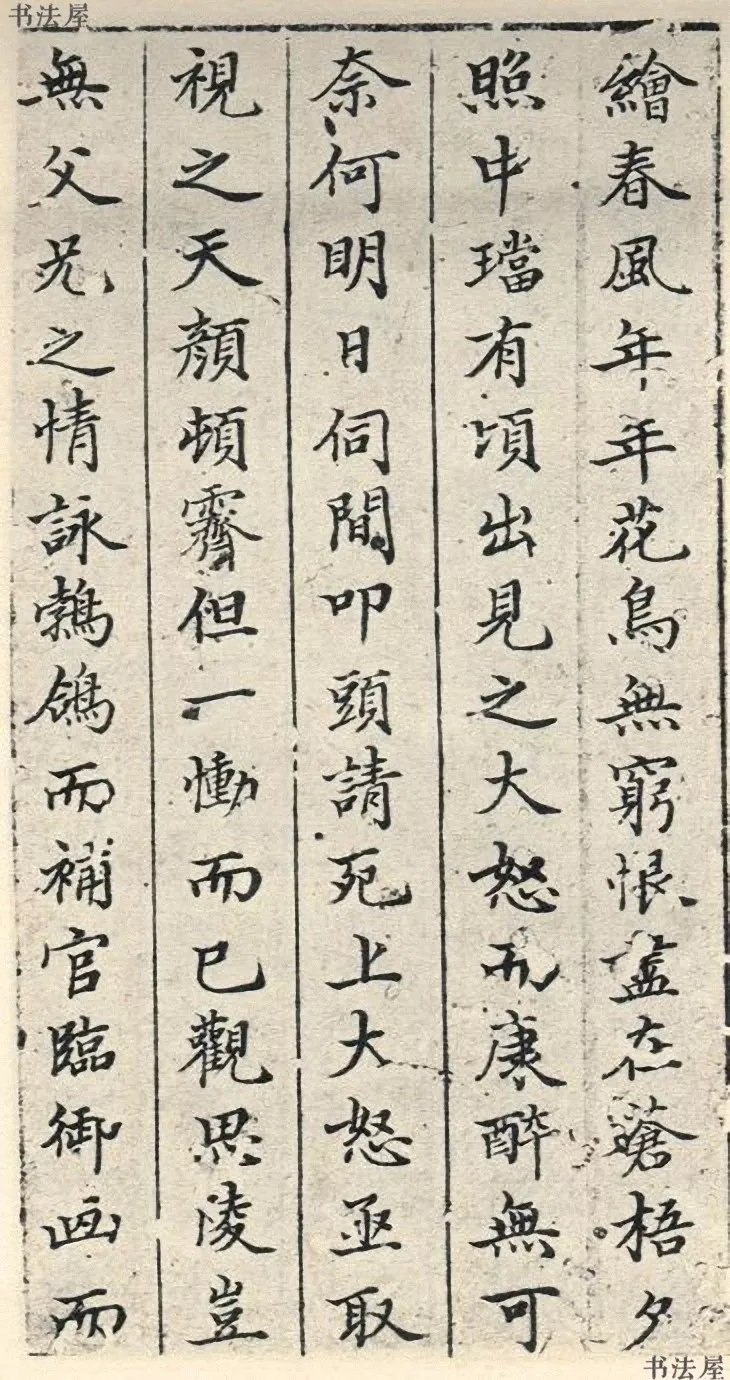 书法屋
繪春風年年花鳥無窮恨盡在蒼梧夕
照中璫有頃出見之大怒而康醉無可
奈何明日伺間叩頭請死上大怒亟取
視之天顏頓霽但一慟而已觀思陵豈
無父兄之情詠鵓鴿而補官臨御画而
书法屋